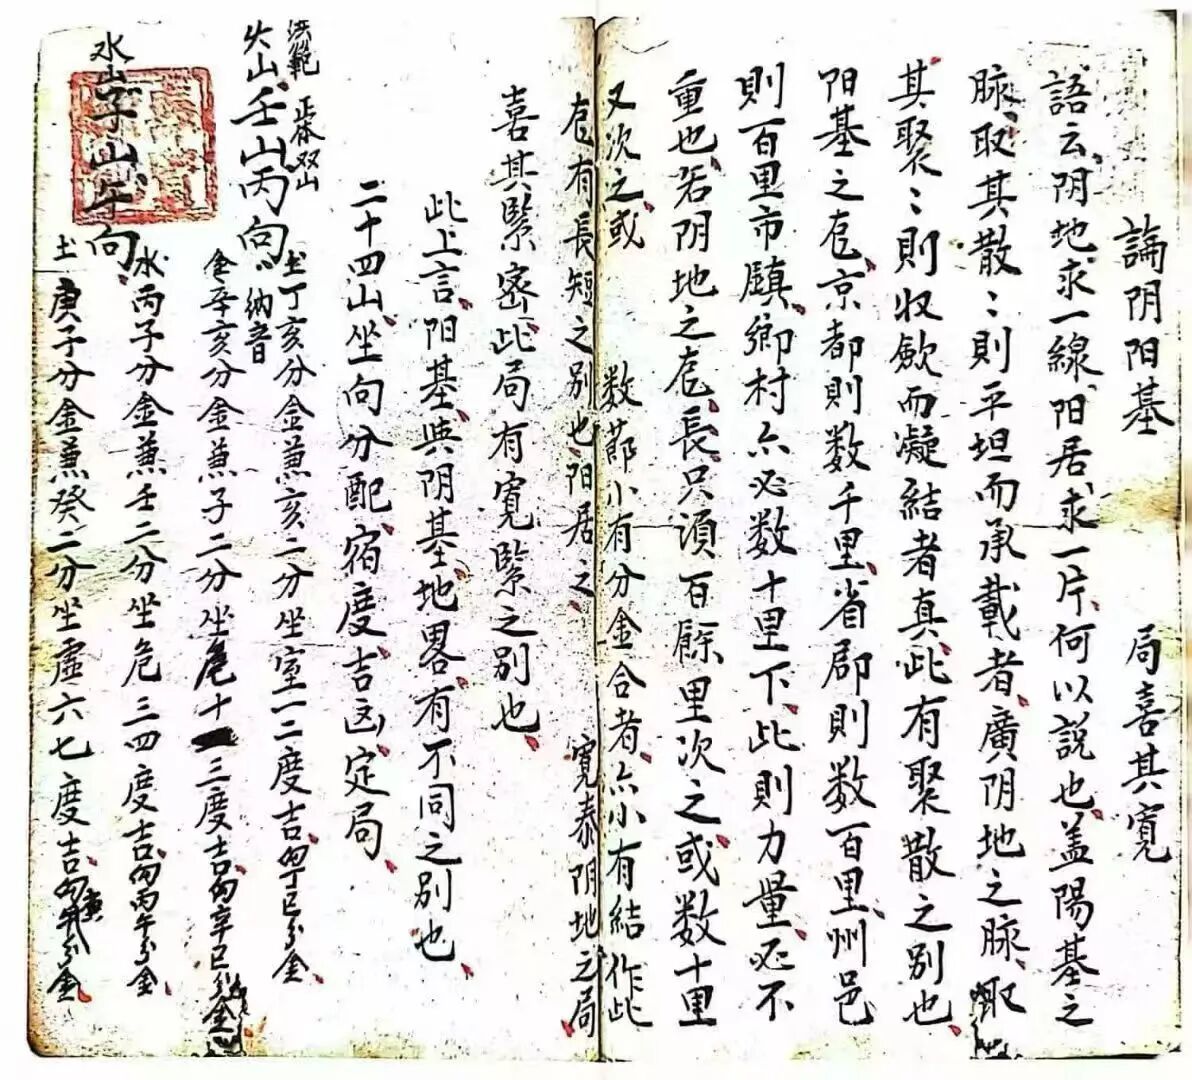 論阴阳基
局喜其寬
語云、阴地求一線、阳居求一片、何以說也、盖陽基之
脉、取其散〻則平坦而承載者、廣阴地之脉、取
其聚〻則收歛而凝結者真、此有聚散之别也、
阳基之卮、京都則数千里、省郡則数百里、州邑
則百里、市鎮、鄉村亦必数十里下、此則力量、必不
重也、若阴地之卮、長只須百餘里次之或数十里
又次之、或数莭小有分金合者、亦小有結作此
卮有長短之别也、阳居之寬泰阴地之局
喜其緊密、此局有寬緊之别也、
此上言、阳基、與阴基、地畧、有不同之别也、
二十四山、坐向分配、宿度、吉凶、定局、
洪範 正体双山
火山、壬山丙向 納音
土丁亥分金兼亥二分坐室一二度吉、向丁巳分金、
金辛亥分金兼子二分坐危十三度吉、向辛巳分金
水山子山、午向、
水丙子分金兼壬二分坐危三四度吉、向丙午分金、
土庚子分金兼癸二分坐虛六七度吉、向庚午分金